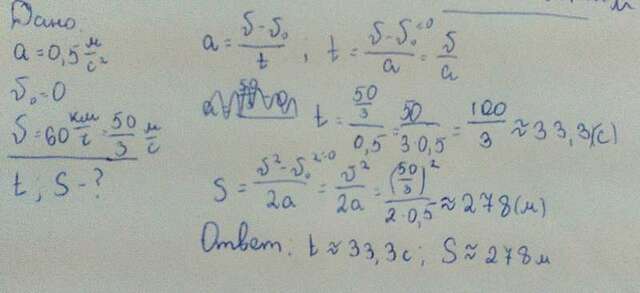 Дано:
a=0,5 м/с²
v₀=0
v=60 км/ч = 50/3 м/с
t; S-?
a = (v-v₀)/t ; t = (v-v₀⁼⁰)/a = v/a
t = (50/3)/0,5 = 50/(3·0,5) = 100/3 ≈ 33,3(с)
S = (v²-v₀²⁼⁰)/2a = v²/2a = (50/3)²/(2·0,5) ≈ 278(м)
Ответ: t≈33,3с; S≈278м